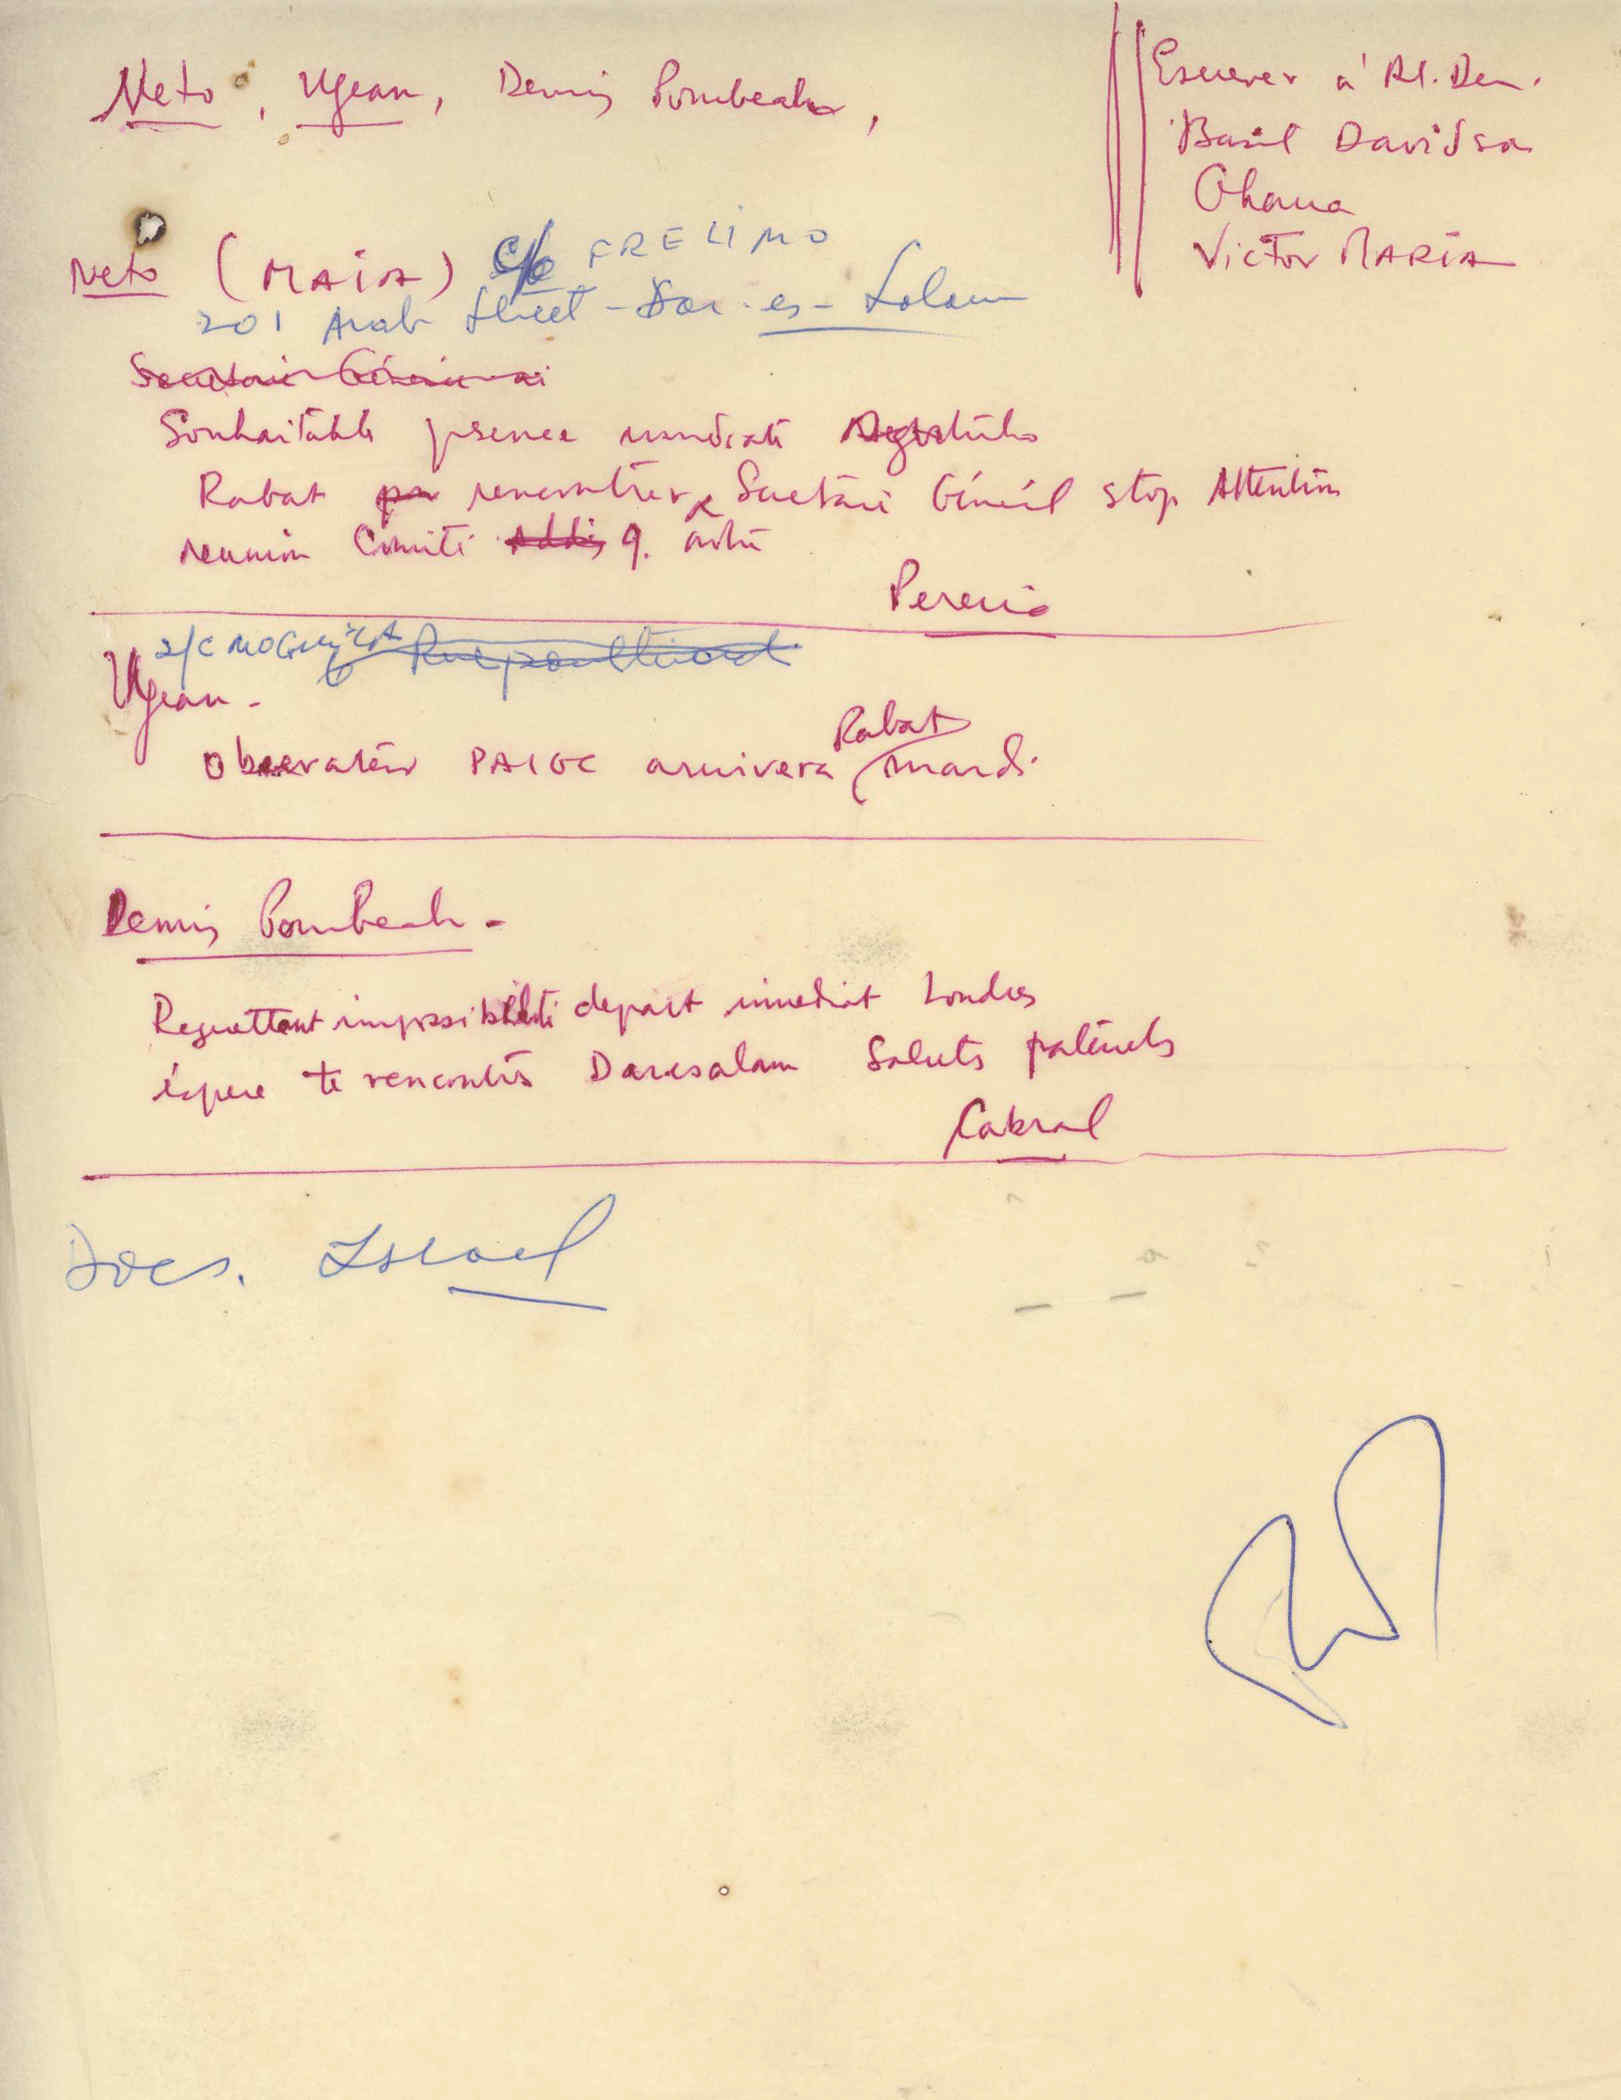 Neto, Ugean, Denis Pombeah,
Escrever à Al. Dem.
Basil Davidson
Ohana
Victor MARIA
Neto (MAIA) c/o FRELIMO
201 Arab Street - Dar-es-Salam
Secrétaire Général
Souhaitable présence Agostinho
Rabat rencontrer Secrétaire Général stop Attention
reunion Comité Addis 9.
Pereira
Ugean -
Observateur PAIGC arrivera Rabat mardi
Denis Pombeah -
Regrettant impossibilité depart immediat Londres
éspere te rencontrer Daresalam Saluts fraternels
Cabral
Docs. Israel